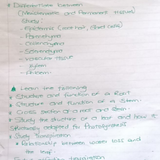 * Differentiate between
(Meristematic and Permanent tissues)
Uses:
- Epidermis (and root, guard cells)
- Parenchyma
- Collenchyma
- Sclerenchyma
- Vascular tissue
- Xylem
- Phloem
Learn the following
Structure and function of a Root
Structure and function of a Stem
Cross section of a root and Stem
Study the structure of a leaf and how it
is suitably adapted for Photosynthesis
Relationship between water loss and